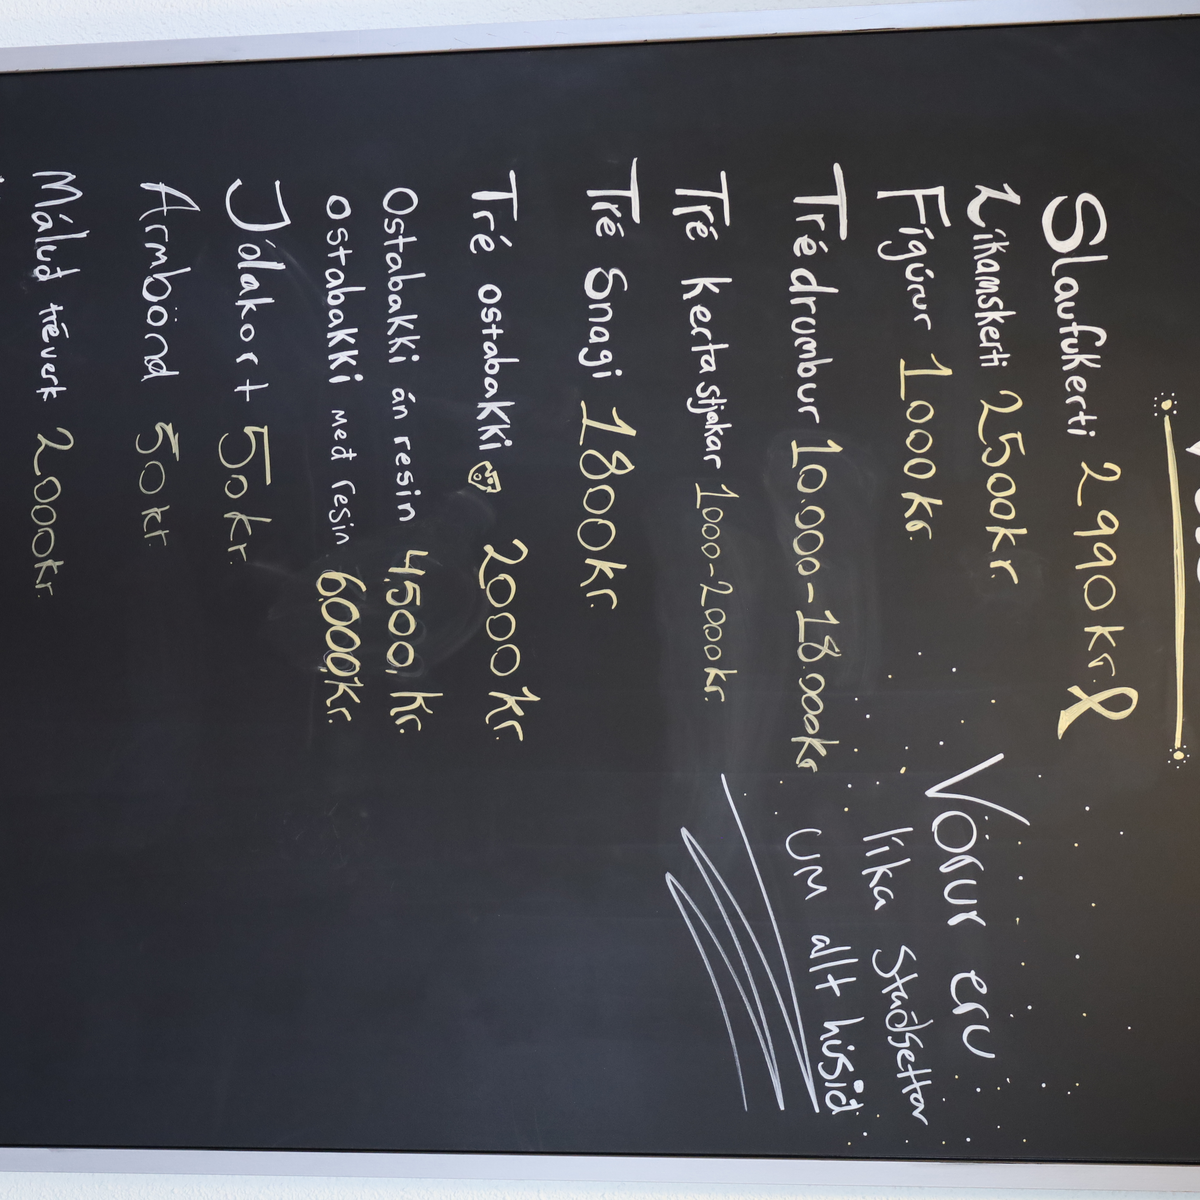 Slaufukerti 2990kr.
Líkamskerti 2500kr.
Fígúrur 1000kr.
Trédrumbur 10.000-18.000kr
Tré kertastjakar 1000-2000kr.
Tré Snagi 1800kr.
Tré ostabakki 2000kr.
Ostabakki án resin 4,500, kr.
ostabakki með resin 6,000,kr.
Jólakort 50kr.
Armbönd 50kr.
Máluð tréverk 2000kr.
Vörur eru
líka staðsettar
um alt húsið